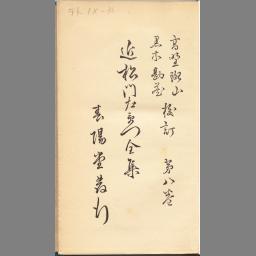 高野斑山
黒木勘蔵 校訂 第八巻
近松門左衛門全集
春陽堂發行